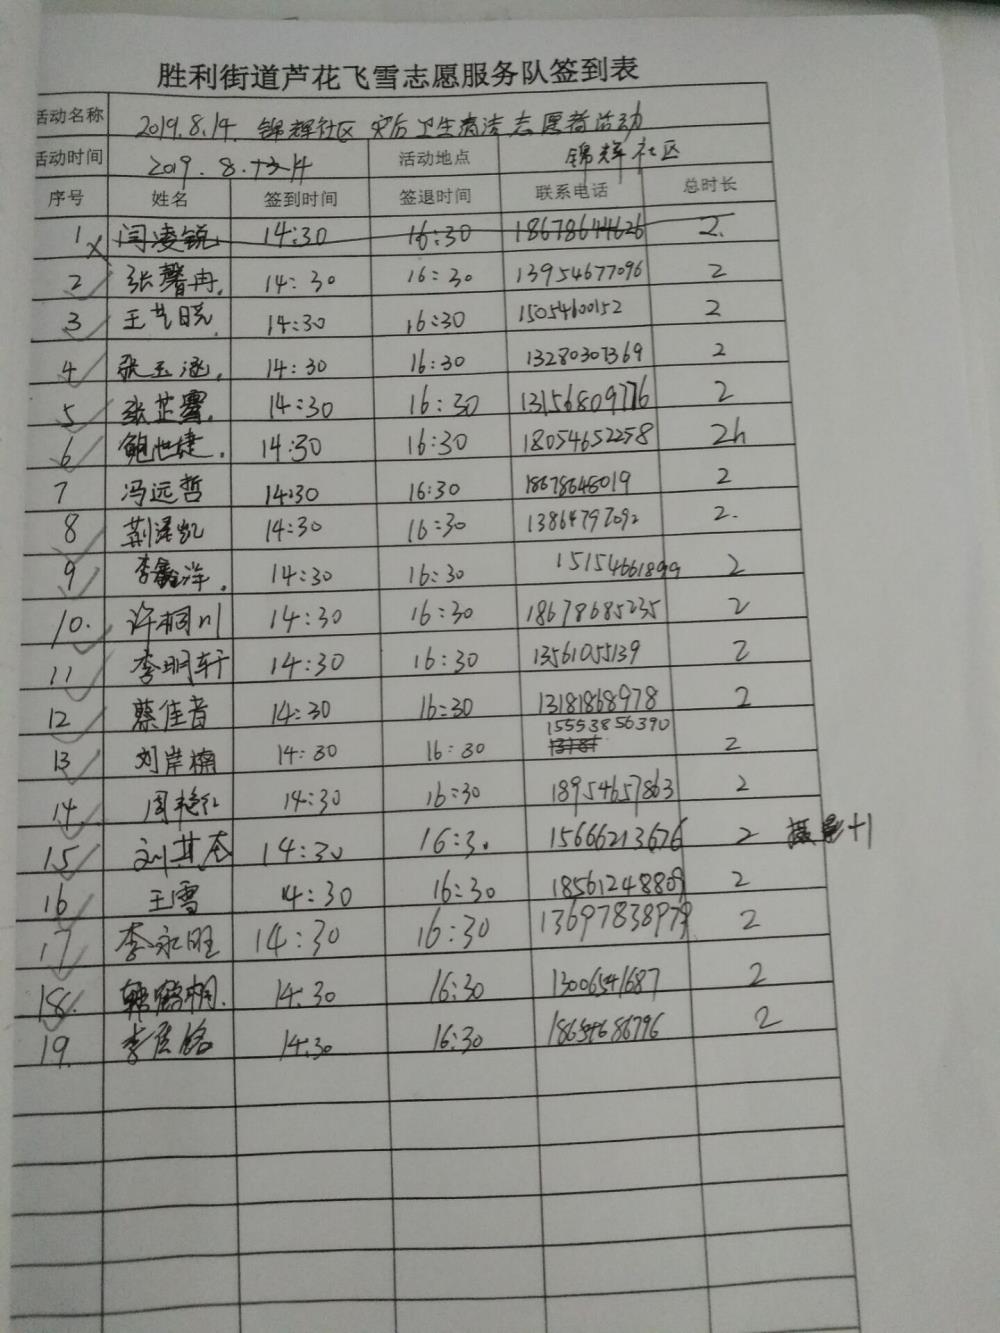 胜利街道芦花飞雪志愿服务队签到表
活动名称 2019.8.14. 锦辉社区 灾后卫生清洁志愿者活动
活动时间 2019.8.14 活动地点 锦辉社区
序号 姓名 签到时间 签退时间 联系电话 总时长
1 闫凌锐 14:30 16:30 18678644626 2.
2 张馨冉. 14:30 16:30 13954677096 2
3 王艺晓 14:30 16:30 15054600152 2
4 张玉涵. 14:30 16:30 13280307369 2
5 张芷露. 14:30 16:30 13156809776 2
6 鲍世捷. 14:30 16:30 18054652258 2h
7 冯远哲 14:30 16:30 18678648019 2
8 荆泽凯 14:30 16:30 13864797092 2.
9 李鑫洋. 14:30 16:30 15154661899 2
10. 许桐川 14:30 16:30 18678685235 2
11 李明轩 14:30 16:30 13561055139 2
12 蔡佳音 14:30 16:30 13181868978 2
13 刘岸楠 14:30 16:30 15553856390 2
14. 周艳红 14:30 16:30 18954657863 2
15 刘其 14:30 16:30 15666213676 2 摄影+1
16 王雪 14:30 16:30 18561248809 2
17 李永旺 14:30 16:30 13697838979 2
18. 韩鹤桐. 14:30 16:30 13006541687 2
19. 14:30 16:30 18654686796 2